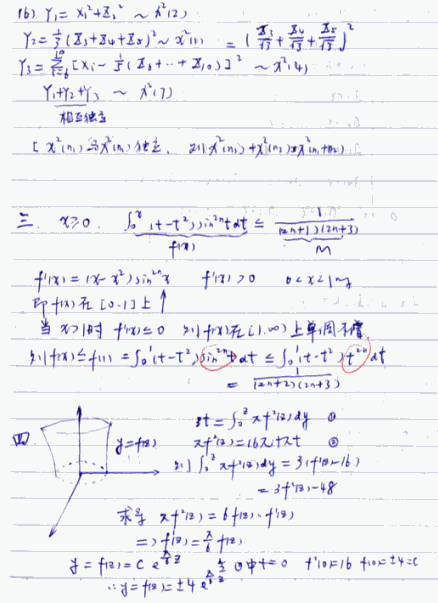 16). Y₁ = X₁²+X₂² ~ χ²(2)
Y₂ = 1/3 (X₃+X₄+X₅)² ~ χ²(1) = (X₃/√3 + X₄/√3 + X₅/√3)²
Y₃ = Σ_{i=6}^{10} [Xi - 1/5 (X₆+…+X₁₀)]² ~ χ²(4)
Y₁+Y₂+Y₃ ~ χ²(7)
相互独立
[ χ²(n₁) 与 χ²(n₂) 独立, 则 χ²(n₁)+χ²(n₂) χ²(n₁+n₂)
三. x≥0. ∫₀ˣ (t-t²) sin²ⁿt dt ≤ 1/((2n+1)(2n+3))
f(x) M
f'(x) = (x-x²) sin²ⁿx f'(x) > 0 0<x<1时
即 f(x) 在 [0.1] 上 ↑
当 x>1时 f'(x) ≤ 0 则 f(x) 在 (1.∞) 上单调不增
则 f(x) ≤ f(1) = ∫₀¹ (t-t²) sin²ⁿt dt ≤ ∫₀¹ (t-t²) t²ⁿ dt
= 1/((2n+2)(2n+3))
四. y=f(z) 3t = ∫₀ᶻ πf²(z) dy ①
πf²(z) = 16π+πt ②
则 ∫₀ᶻ πf²(z) dy = 3(f²(z)-16)
= 3f²(z)-48
求导 πf²(z) = 6f(z)·f'(z)
⇒ f'(z) = π/6 f(z)
y = f(z) = C e^{π/6 z} 令 ①中 t=0 f²(0)=16 f(0)=±4=C
∴ y = f(z) = ±4 e^{π/6 z}